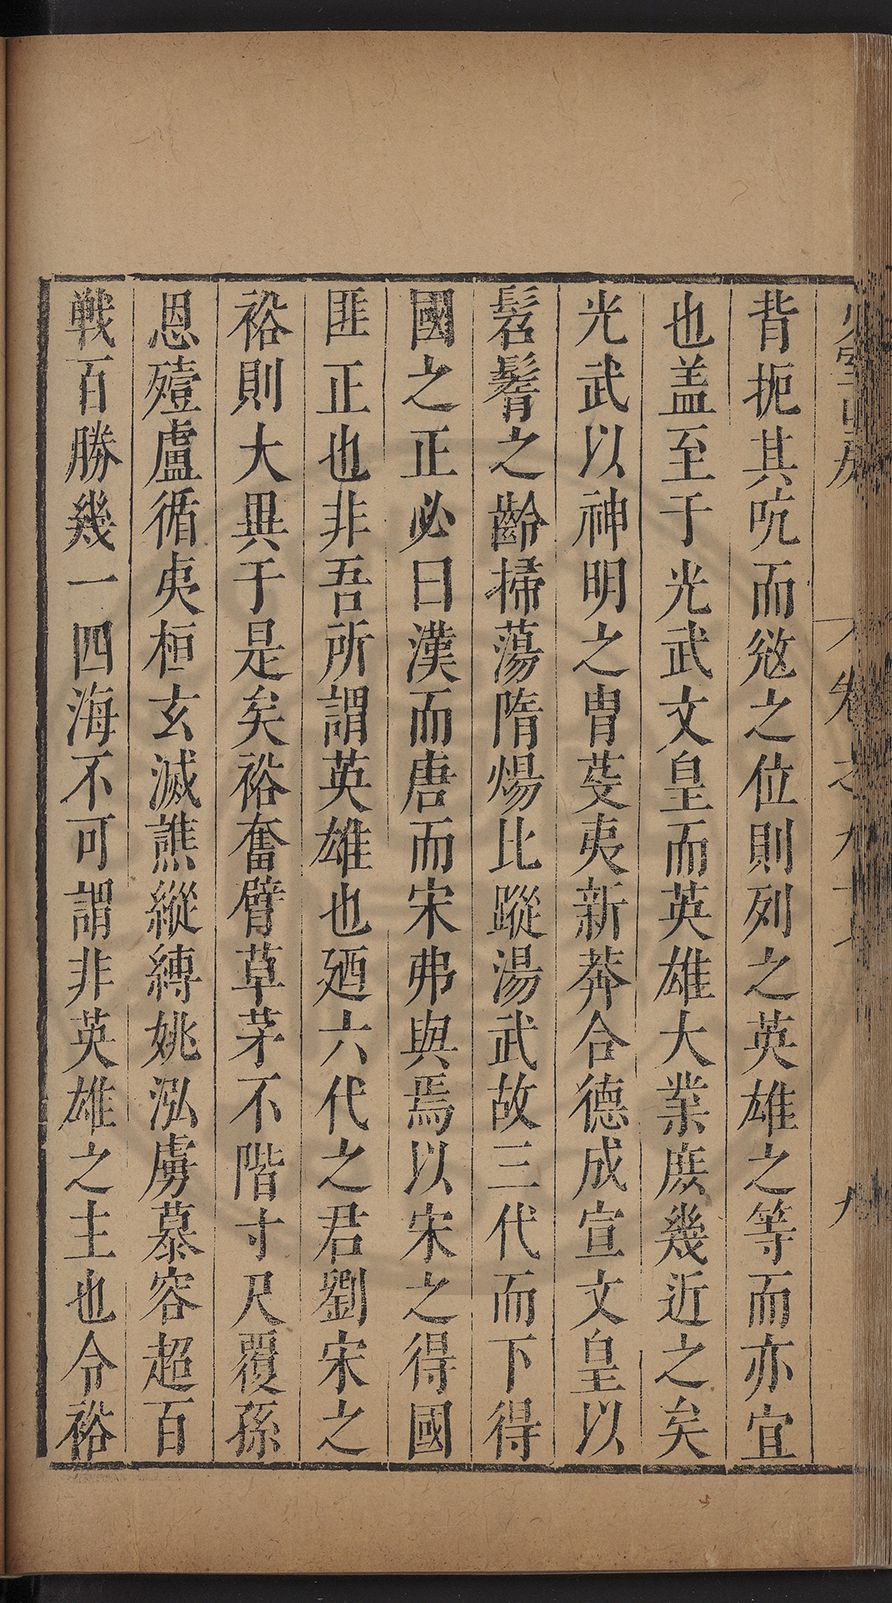 少室山房 卷之九十 九
背扼其吭而逊之位則列之英雄之等而亦宜
也盖至于光武文皇而英雄大業庶幾近之矣
光武以神明之冑芟夷新莽合德成宣文皇以
髫鬌之齡掃蕩隋煬比蹤湯武故三代而下得
國之正必曰漢而唐而宋弗與焉以宋之得國
匪正也非吾所謂英雄也廼六代之君劉宋之
裕則大異于是矣裕奮臂草茅不階寸尺覆孫
恩殪盧循夷桓玄滅譙縱縳姚泓虜慕容超百
戰百勝幾一四海不可謂非英雄之主也令裕